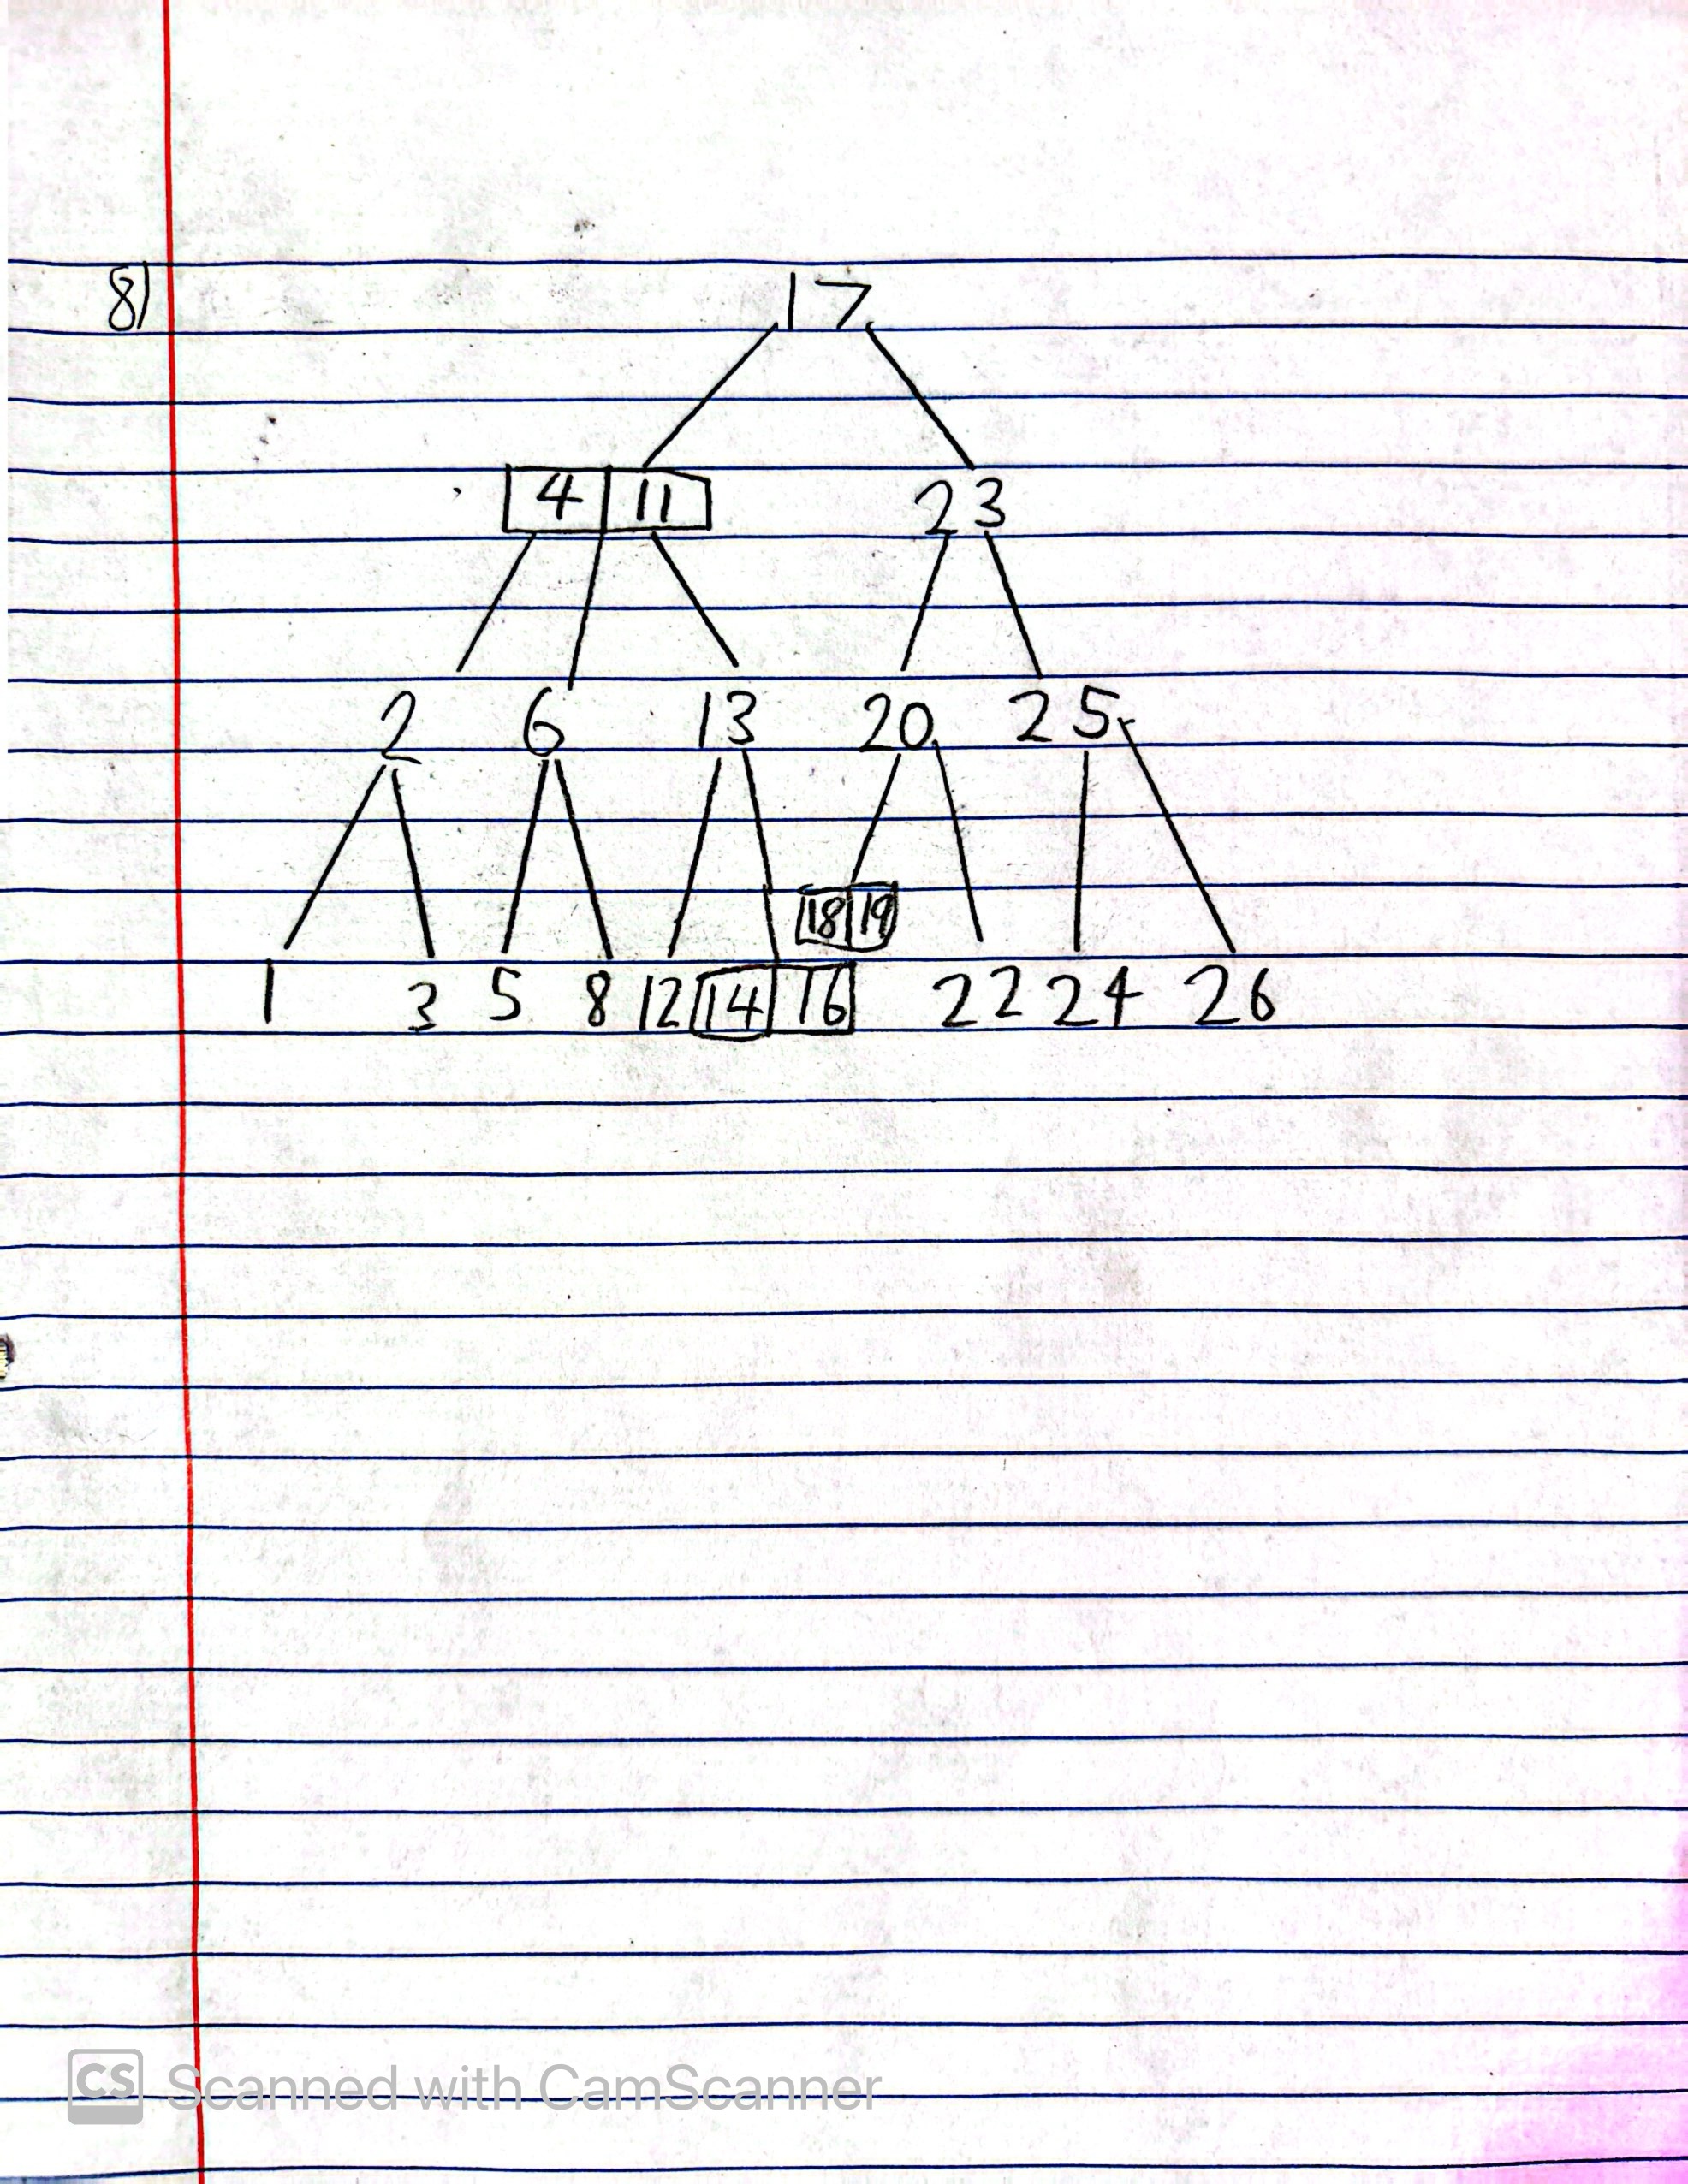 8) 17
4 11 23
2 6 13 20 25
18 19
1 3 5 8 12 14 16 22 24 26
CS Scanned with CamScanner